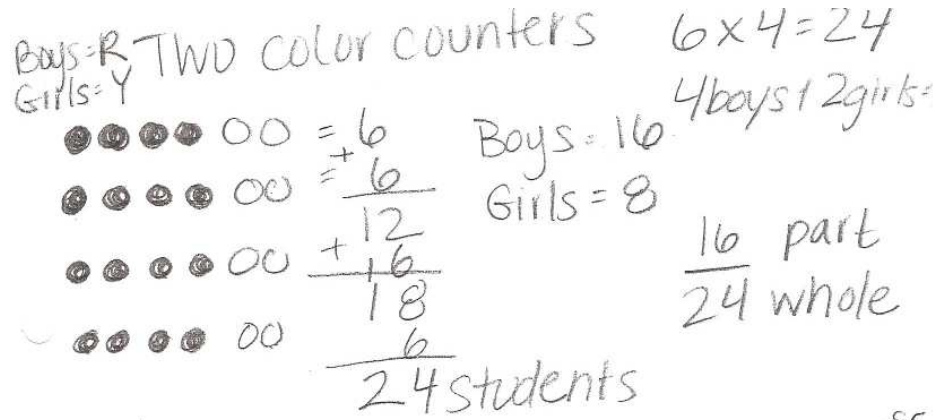 Boys=R Two color counters
Girls=Y
6x4=24
4boys+2girls=
= 6
+
= 6
12
+ 6
18
6
24 students
Boys=16
Girls=8
16 part
24 whole